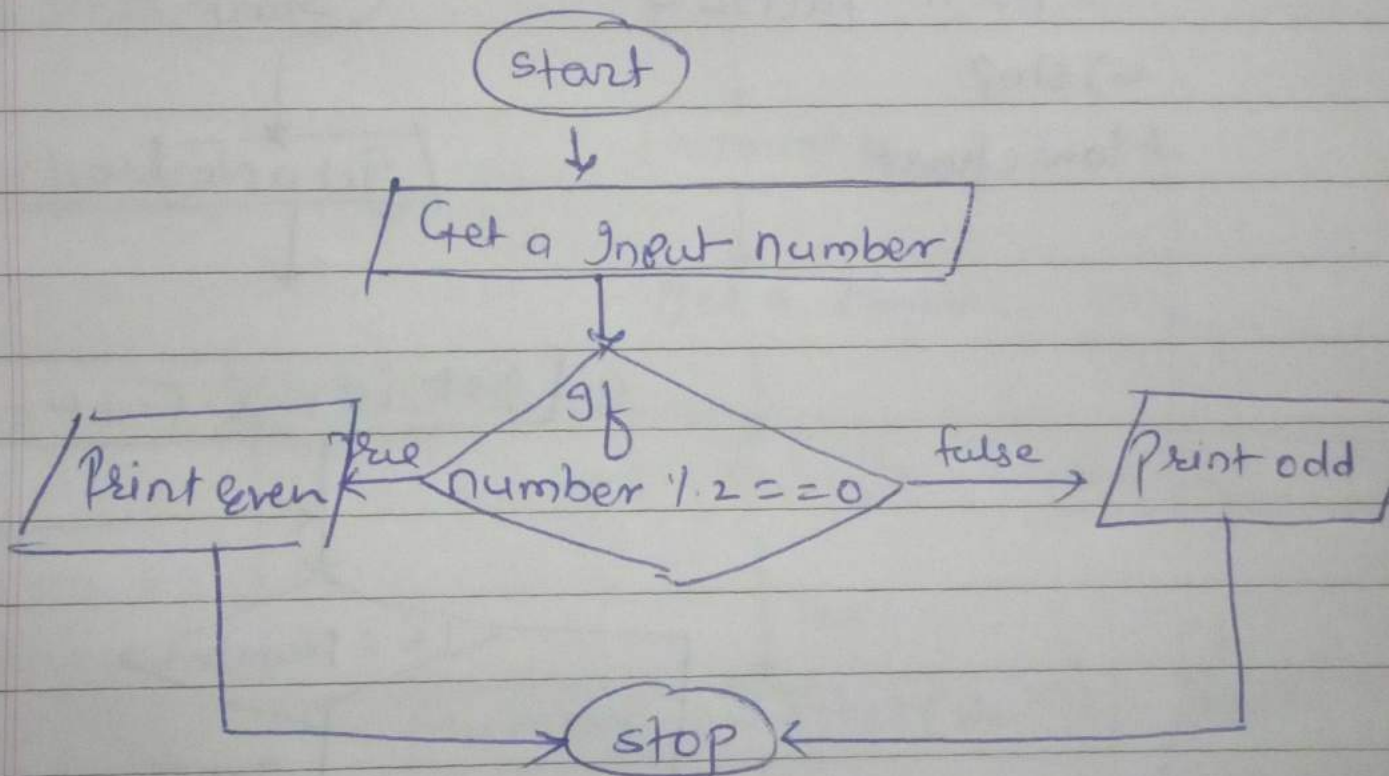 start
Get a Input number
If
number % 2 == 0
True
Print even
false
Print odd
stop